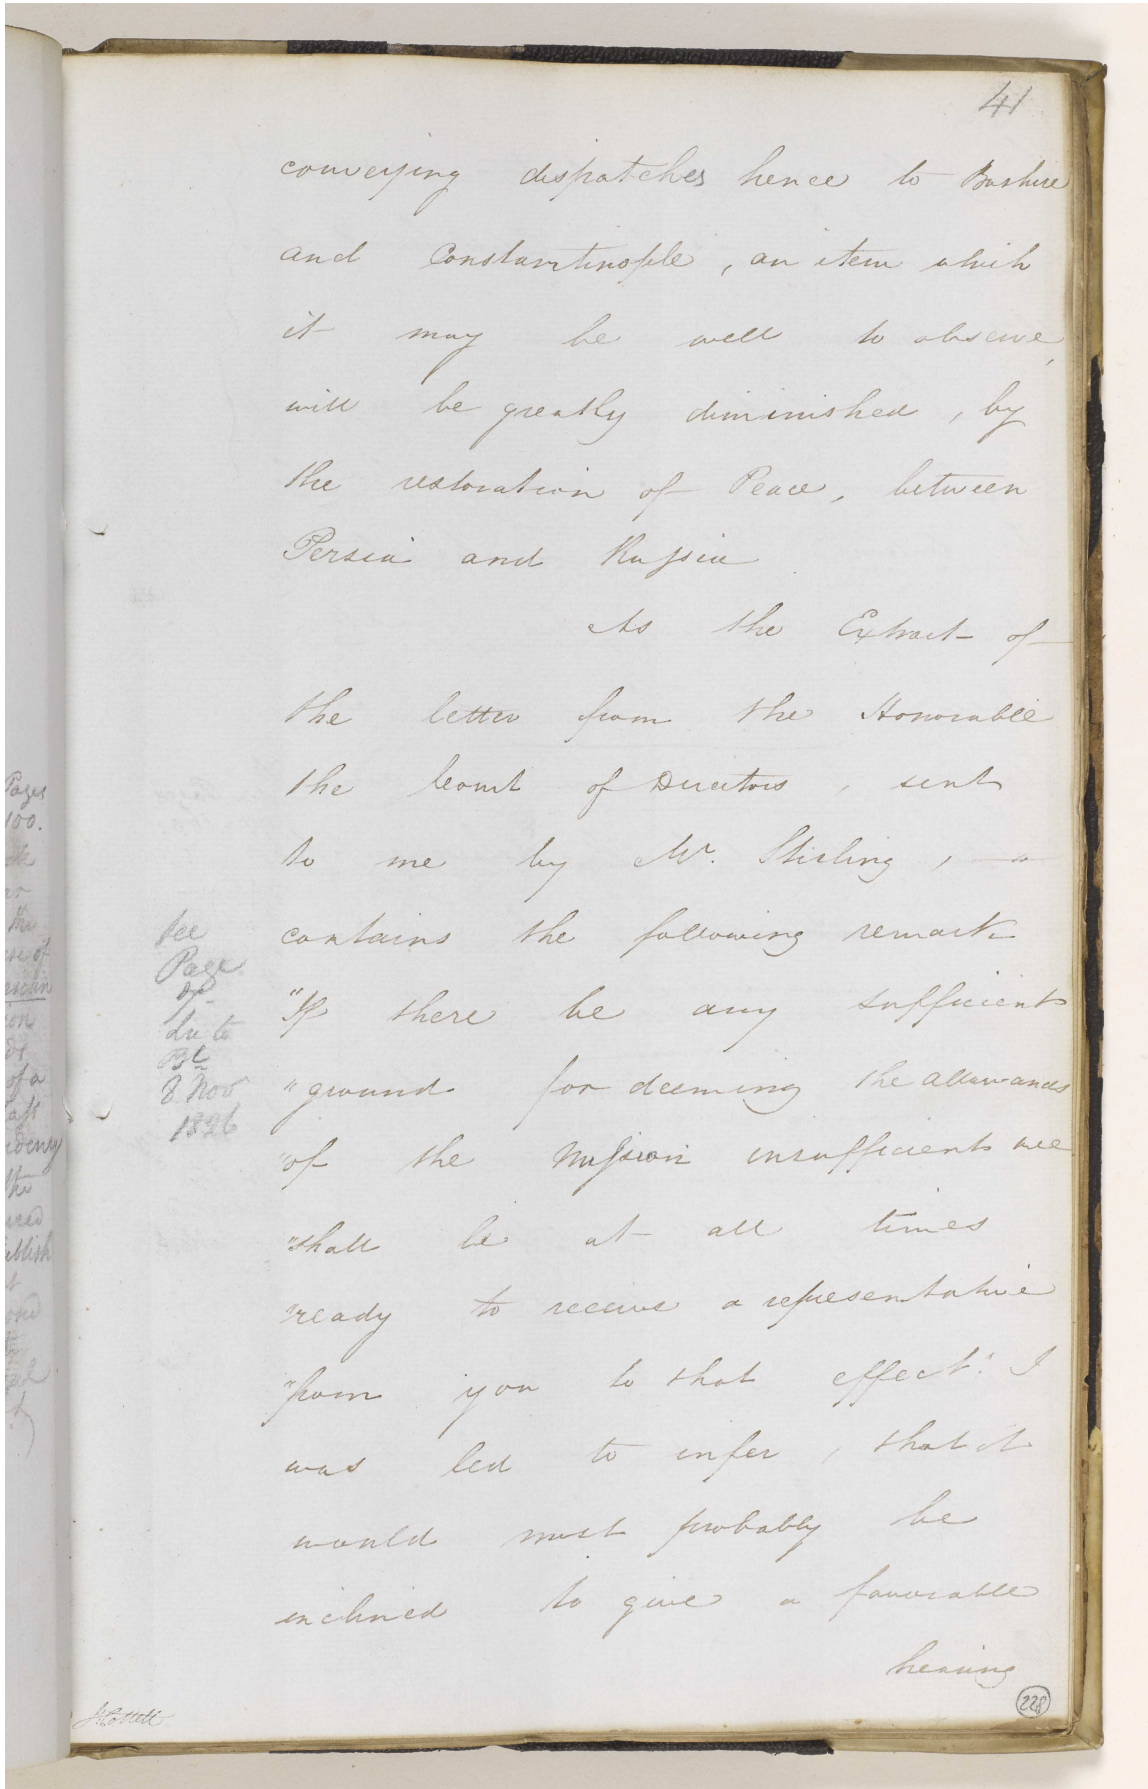 41
conveying dispatches hence to Bushire
and Constantinople, an item which
it may be well to observe,
will be greatly diminished, by
the restoration of Peace, between
Persia and Russia
As the Extract of
the letter from the Honorable
the Court of Directors, sent
to me by Mr. Stirling,
contains the following remark
"If there be any sufficient
"ground for deeming the allowances
"of the Mission insufficient we
"shall be at all times
"ready to receive a representative
"from you to that effect." I
was led to infer, that it
would most probably be
inclined to give a favorable
hearing
See
Page
of
to
Bl
8 Nov
1826
228
Pages
100.
the
of a
the